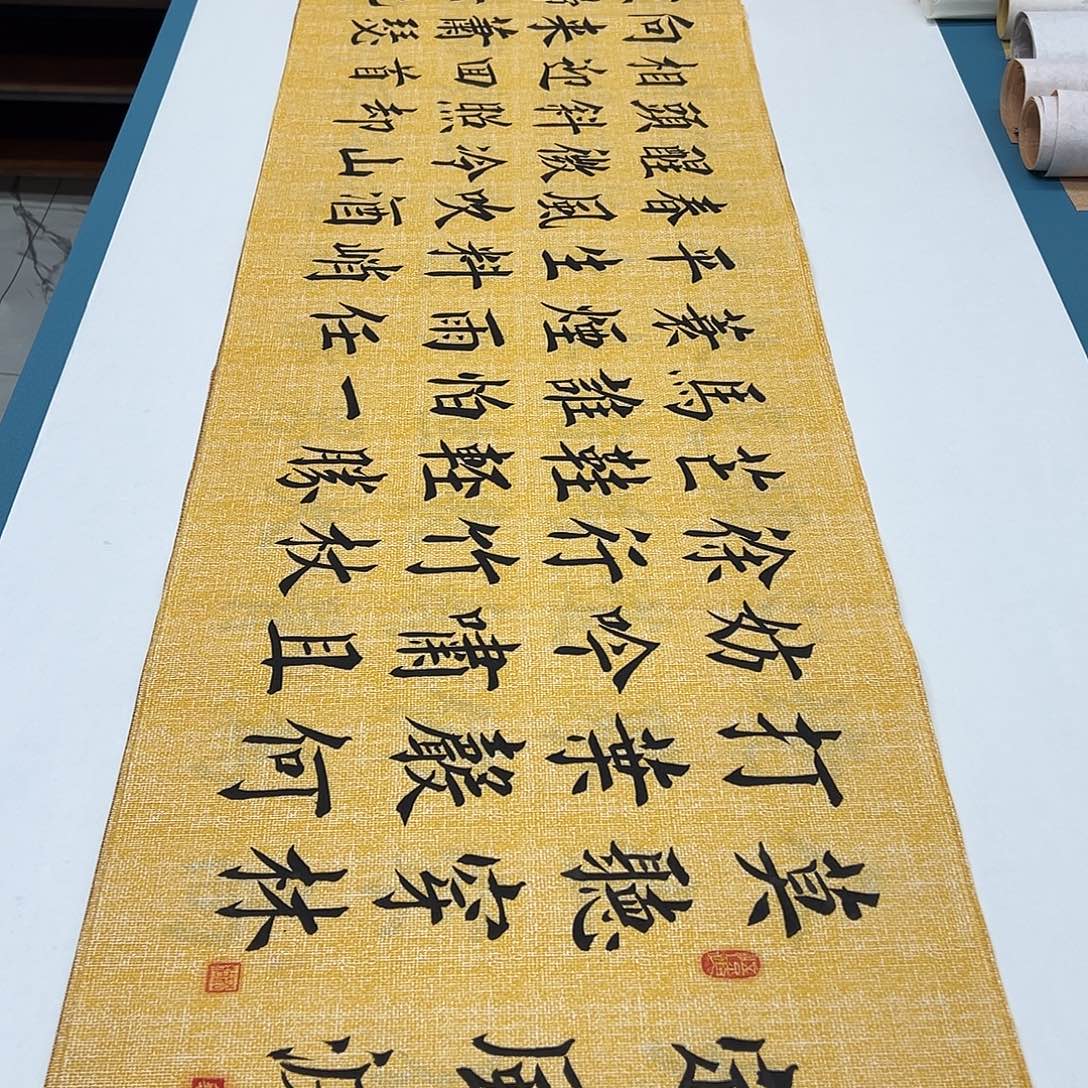 定風波
莫聽穿林
打葉聲何
妨吟嘯且
徐行竹杖
芒鞋輕勝
馬誰怕一
蓑煙雨任
平生料峭
春風吹酒
醒微冷山
頭斜照却
相迎回首
向来蕭